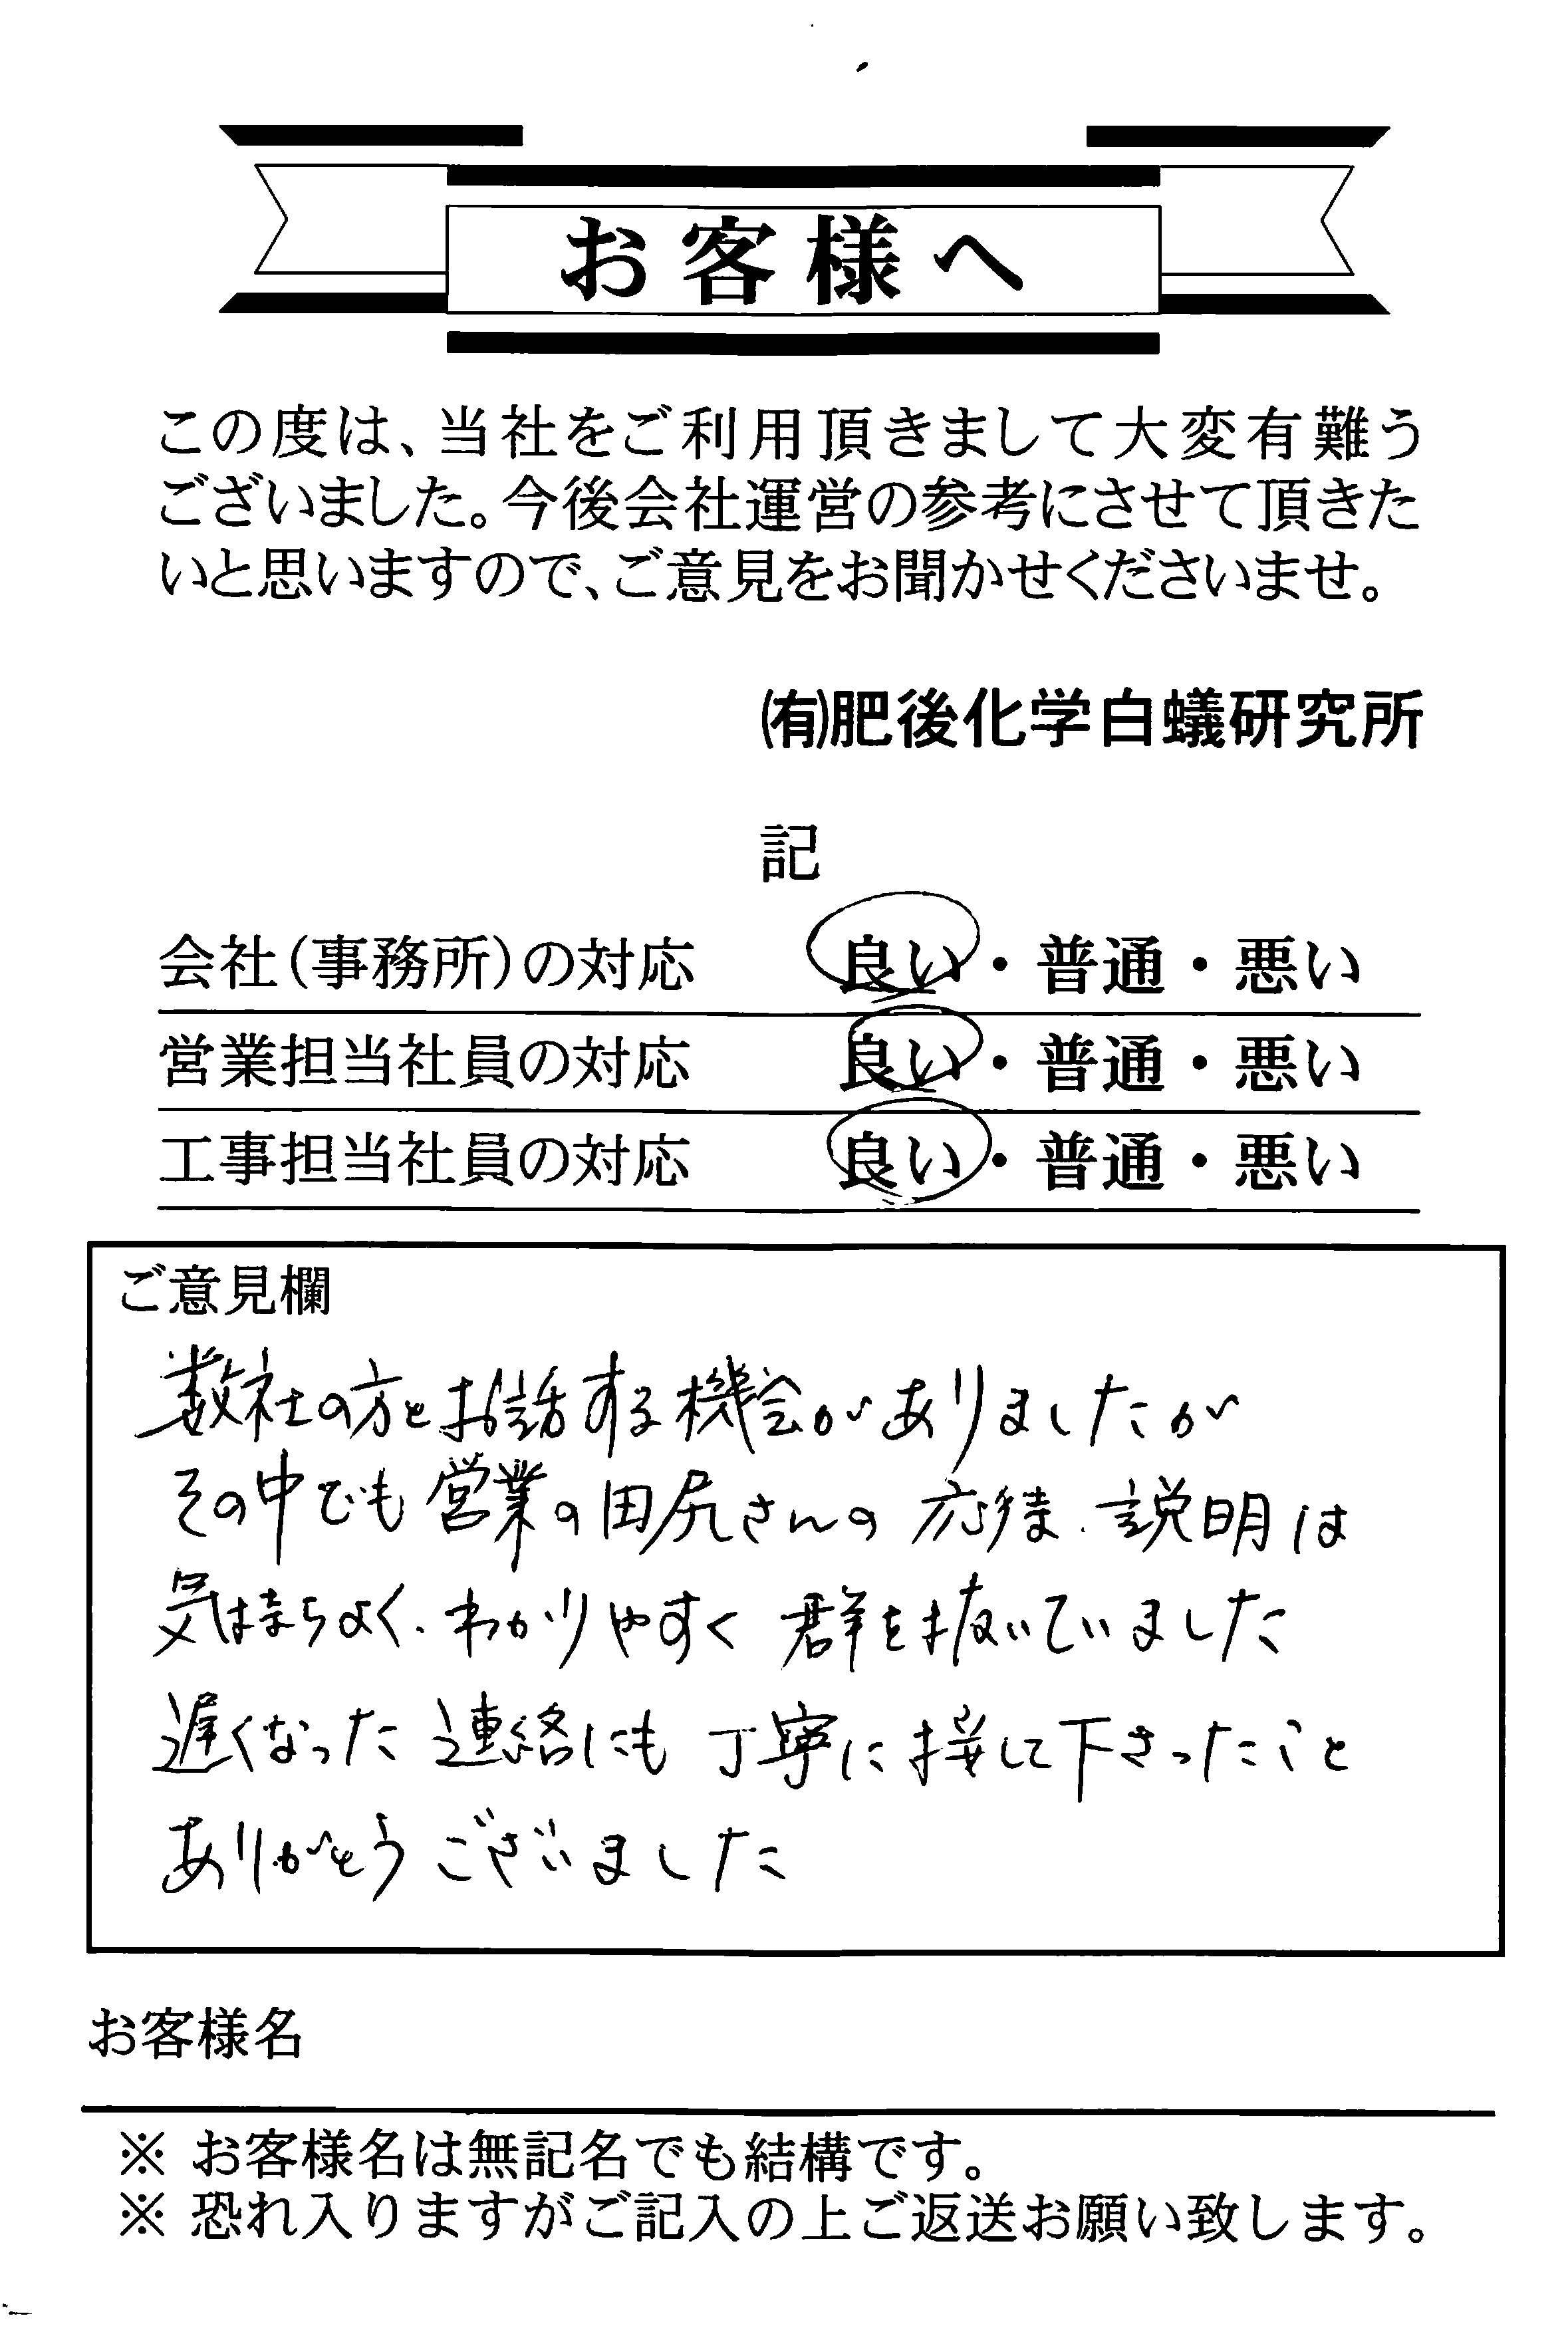 お客様へ
この度は、当社をご利用頂きまして大変有難う
ございました。今後会社運営の参考にさせて頂きた
いと思いますので、ご意見をお聞かせくださいませ。
㈲肥後化学白蟻研究所
記
会社(事務所)の対応 良い・普通・悪い
営業担当社員の対応 良い・普通・悪い
工事担当社員の対応 良い・普通・悪い
ご意見欄
数社の方とお話する機会がありましたが
その中でも営業の田尻さんの応待、説明は
気持ちよく、わかりやすく群を抜いていました
遅くなった連絡にも丁寧に接して下さったこと
ありがとうございました
お客様名
※ お客様名は無記名でも結構です。
※ 恐れ入りますがご記入の上ご返送お願い致します。